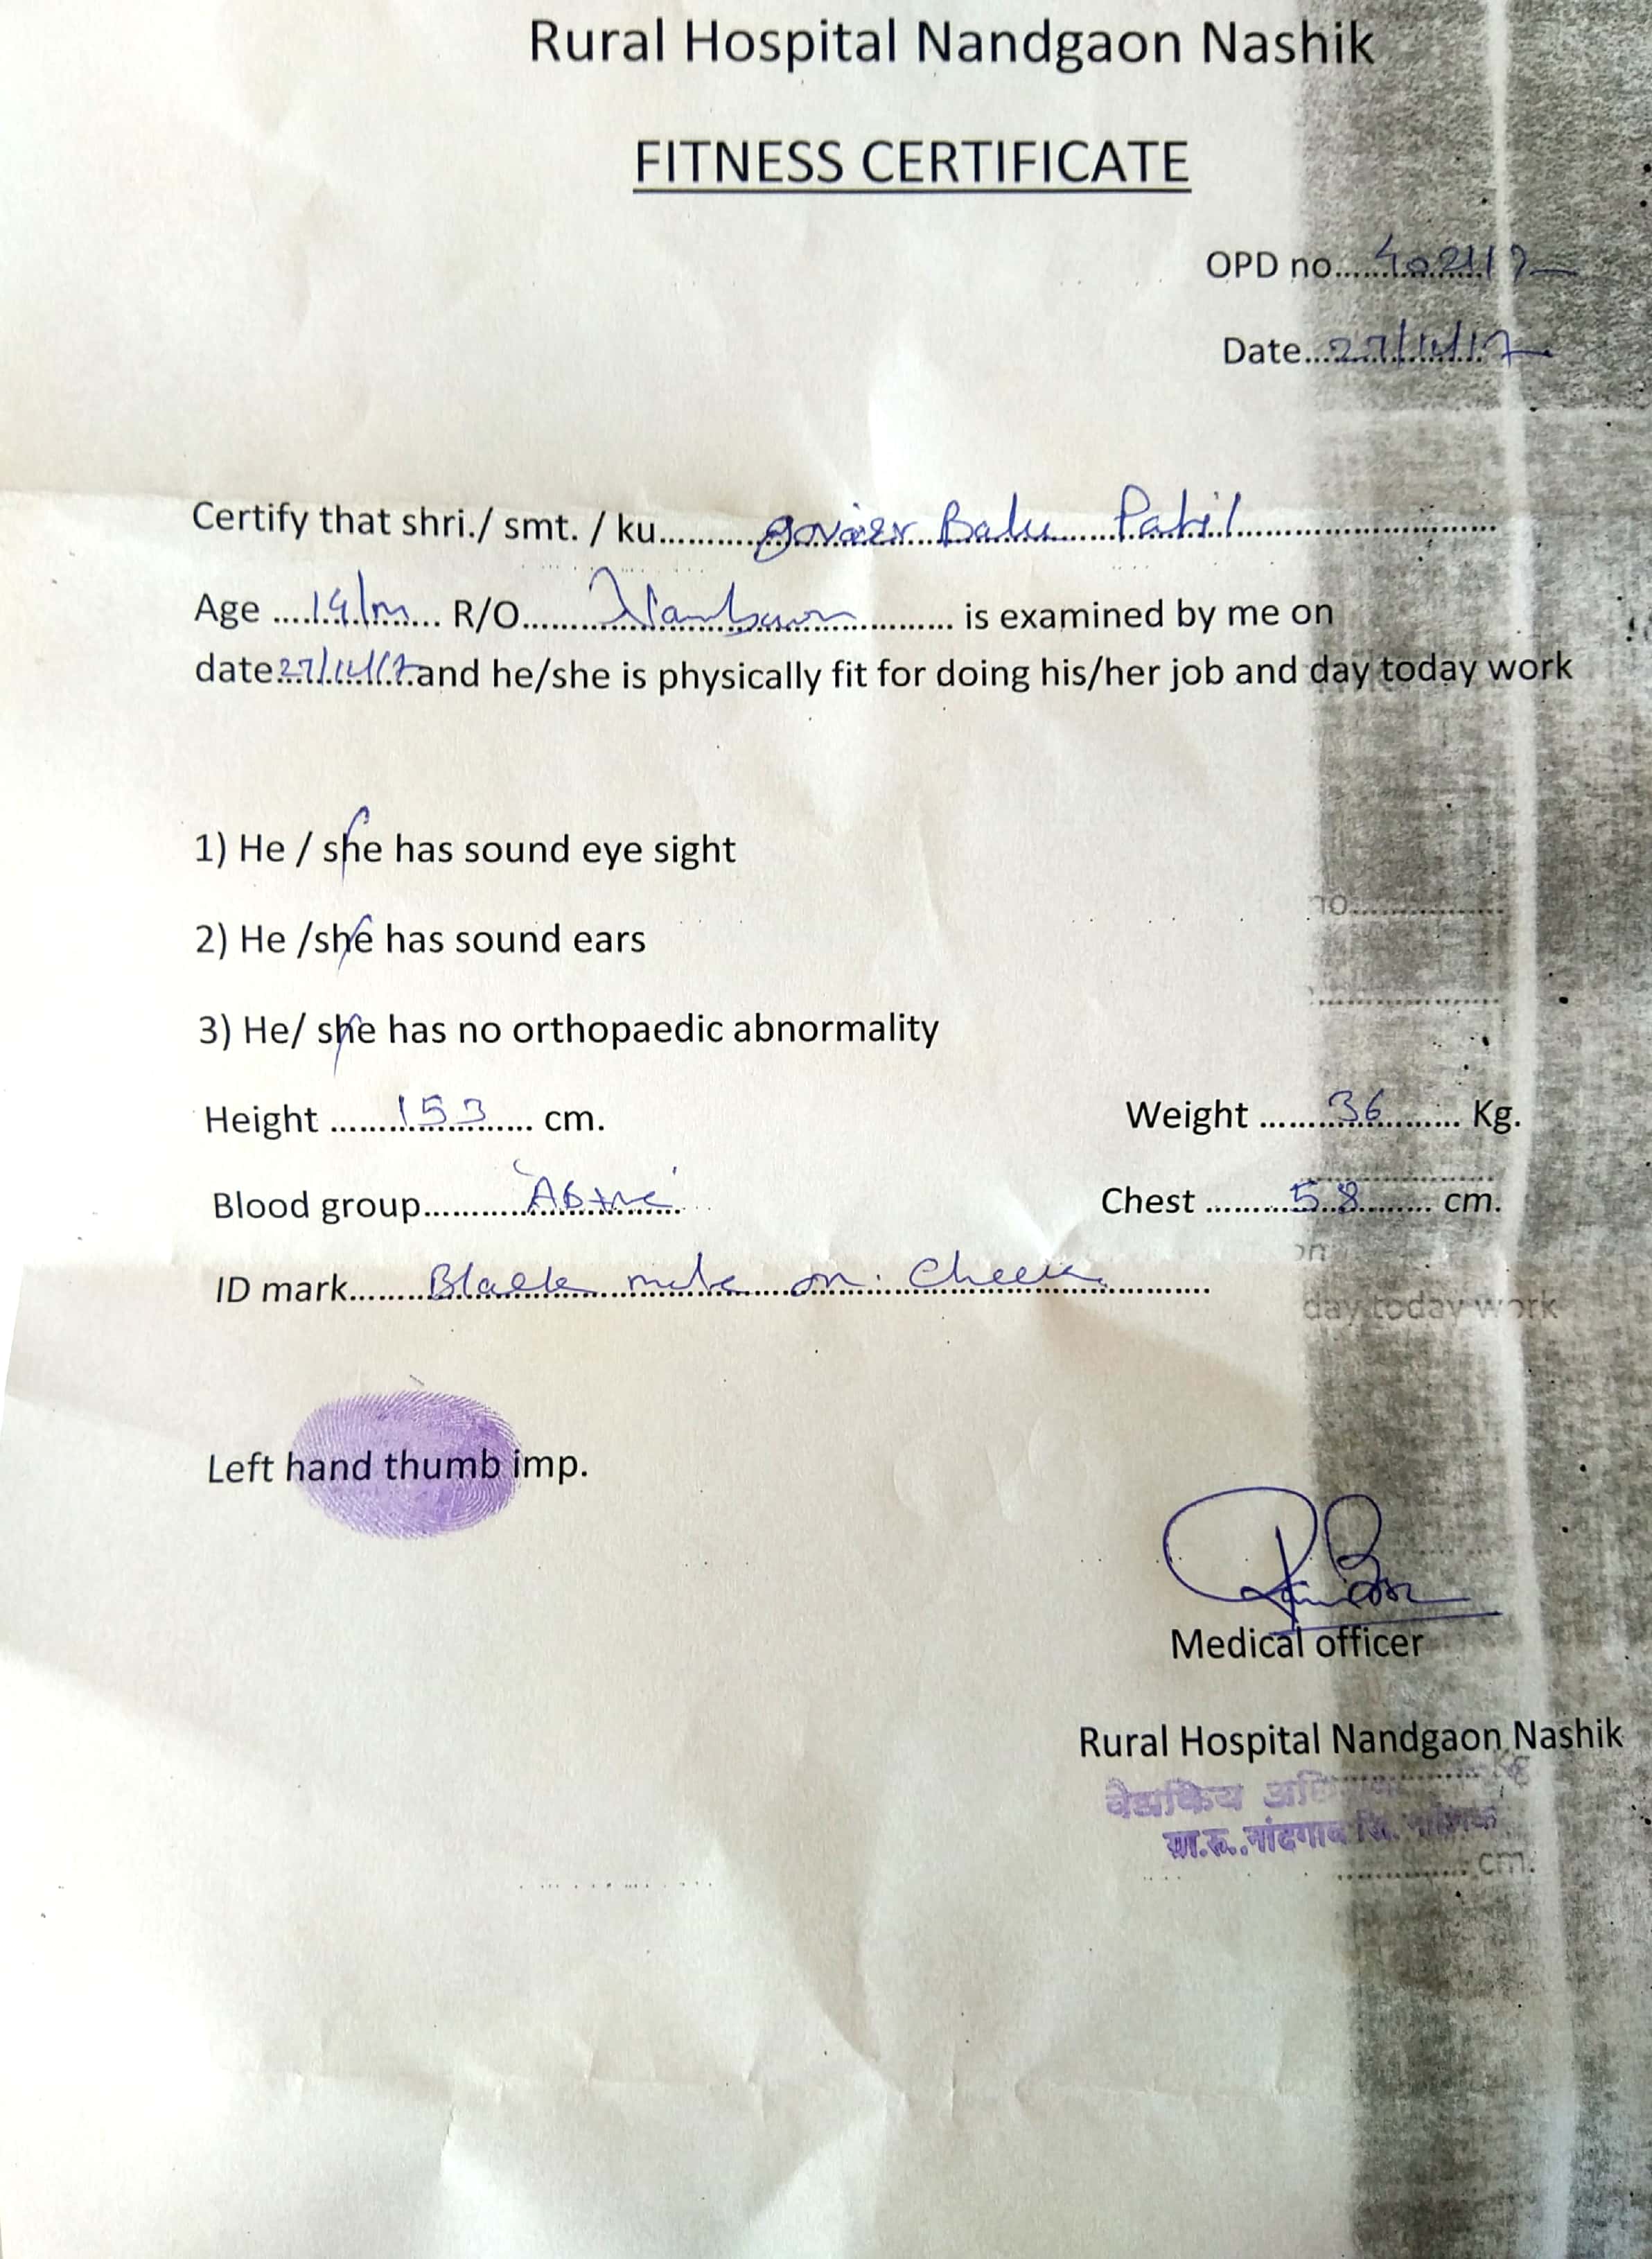 Rural Hospital Nandgaon Nashik
FITNESS CERTIFICATE
OPD no.....
Date...27/11/17
Certify that shri./ smt. / ku.......... Balu Patil..........
Age ....14/m... R/O.......... is examined by me on
date 27/11/17 and he/she is physically fit for doing his/her job and day today work
1) He / she has sound eye sight
2) He /she has sound ears
no..........
3) He/ she has no orthopaedic abnormality
Height .......153....... cm.
Weight .......36....... Kg.
Blood group.......AB+ve.......
Chest .......58....... cm.
on
ID mark.......Black mole on Cheek.......
day today work
Left hand thumb imp.
Medical officer
Rural Hospital Nandgaon Nashik
वैद्यकिय
ग्रा.रू. नांदगाव जि. नाशिक
cm.